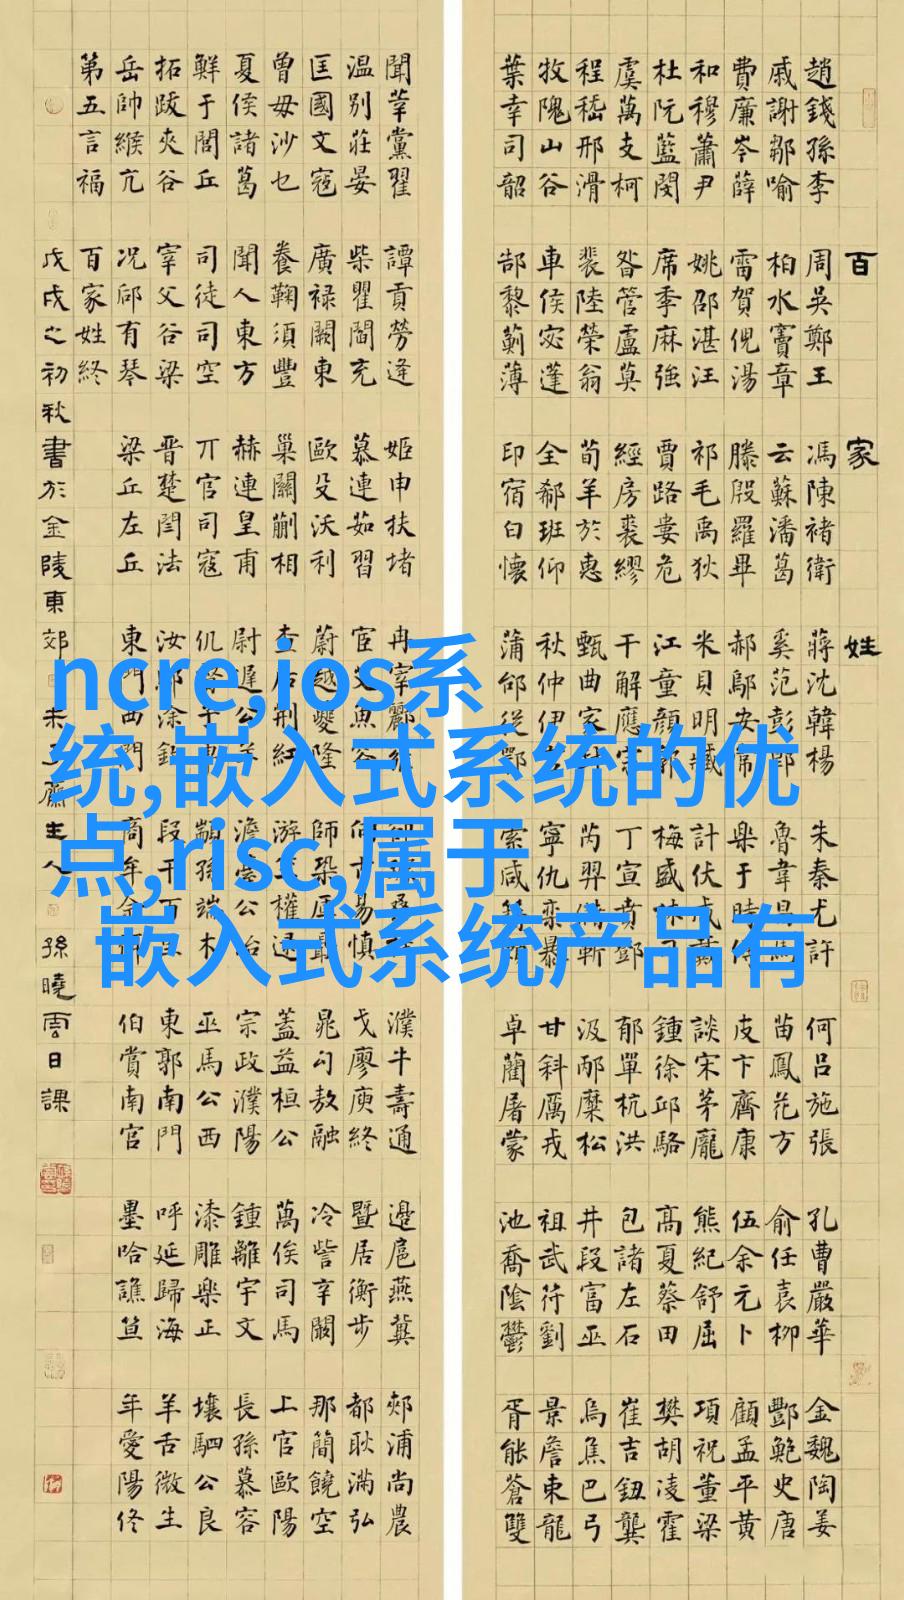 百家姓
趙錢孫李周吳鄭王馮陳褚衛蔣沈韓楊朱秦尤許何呂施張孔曹嚴華金魏陶姜
戚謝鄒喻柏水竇章云蘇潘葛奚范彭郎魯韋昌馬苗鳳花方俞任袁柳酆鮑史唐
費廉岑薛雷賀倪湯滕殷羅畢郝鄔安常樂于時傅皮卞齊康伍余元卜顧孟平黃
和穆蕭尹姚邵湛汪祁毛禹狄米貝明臧計伏成戴談宋茅龐熊紀舒屈項祝董梁
杜阮藍閔席季麻強賈路婁危江童顏郭梅盛林刁鍾徐邱駱高夏蔡田樊胡凌霍
虞萬支柯昝管盧莫經房裘繆干解應宗丁宣賁鄧郁單杭洪包諸左石崔吉鈕龔
程嵇邢滑裴陸榮翁荀羊於惠甄曲家封芮羿儲靳汲邴糜松井段富巫烏焦巴弓
牧隗山谷車侯宓蓬全郗班仰秋仲伊宮寧仇欒暴甘斜厲戎祖武符劉景詹束龍
葉幸司韶郜黎薊薄印宿白懷蒲邰從鄂索咸籍賴卓藺屠蒙池喬陰鬱胥能蒼雙
聞莘黨翟譚貢勞逄姬申扶堵冉宰酈雍桑濮牛壽通邊扈燕冀郟浦尚農
温別莊晏柴瞿閻充慕連茹習宦艾魚容向古易慎戈廖庾終暨居衡步都耿滿弘
匡國文寇廣祿闕東歐殳沃利蔚越夔隆師鞏厙聶晁勾敖融冷訾辛闞那簡饒空
曾毋沙乜養鞠須豐巢關蒯相查后荊紅游竺權逯蓋益桓公萬俟司馬上官歐陽
夏侯諸葛聞人東方赫連皇甫尉遲公羊澹臺公冶宗政濮陽鍾離宇文長孫慕容
鮮于閭丘司徒司空丌官司寇仉督子車顓孫端木巫馬公西漆雕樂正壤駟公良
拓跋夾谷宰父谷梁晋楚閆法汝鄢涂欽段干百里東郭南門呼延歸海羊舌微生
岳帥緱亢况郈有琴梁丘左丘東門西門商牟佘佴伯賞南宮墨哈譙笪年愛陽佟
第五言福百家姓終
戊戌之初秋書於金陵東郊未了廬主人孫曉雲日課
ncre,ios系
统,嵌入式系统的优
点,risc,属于
嵌入式系统产品有